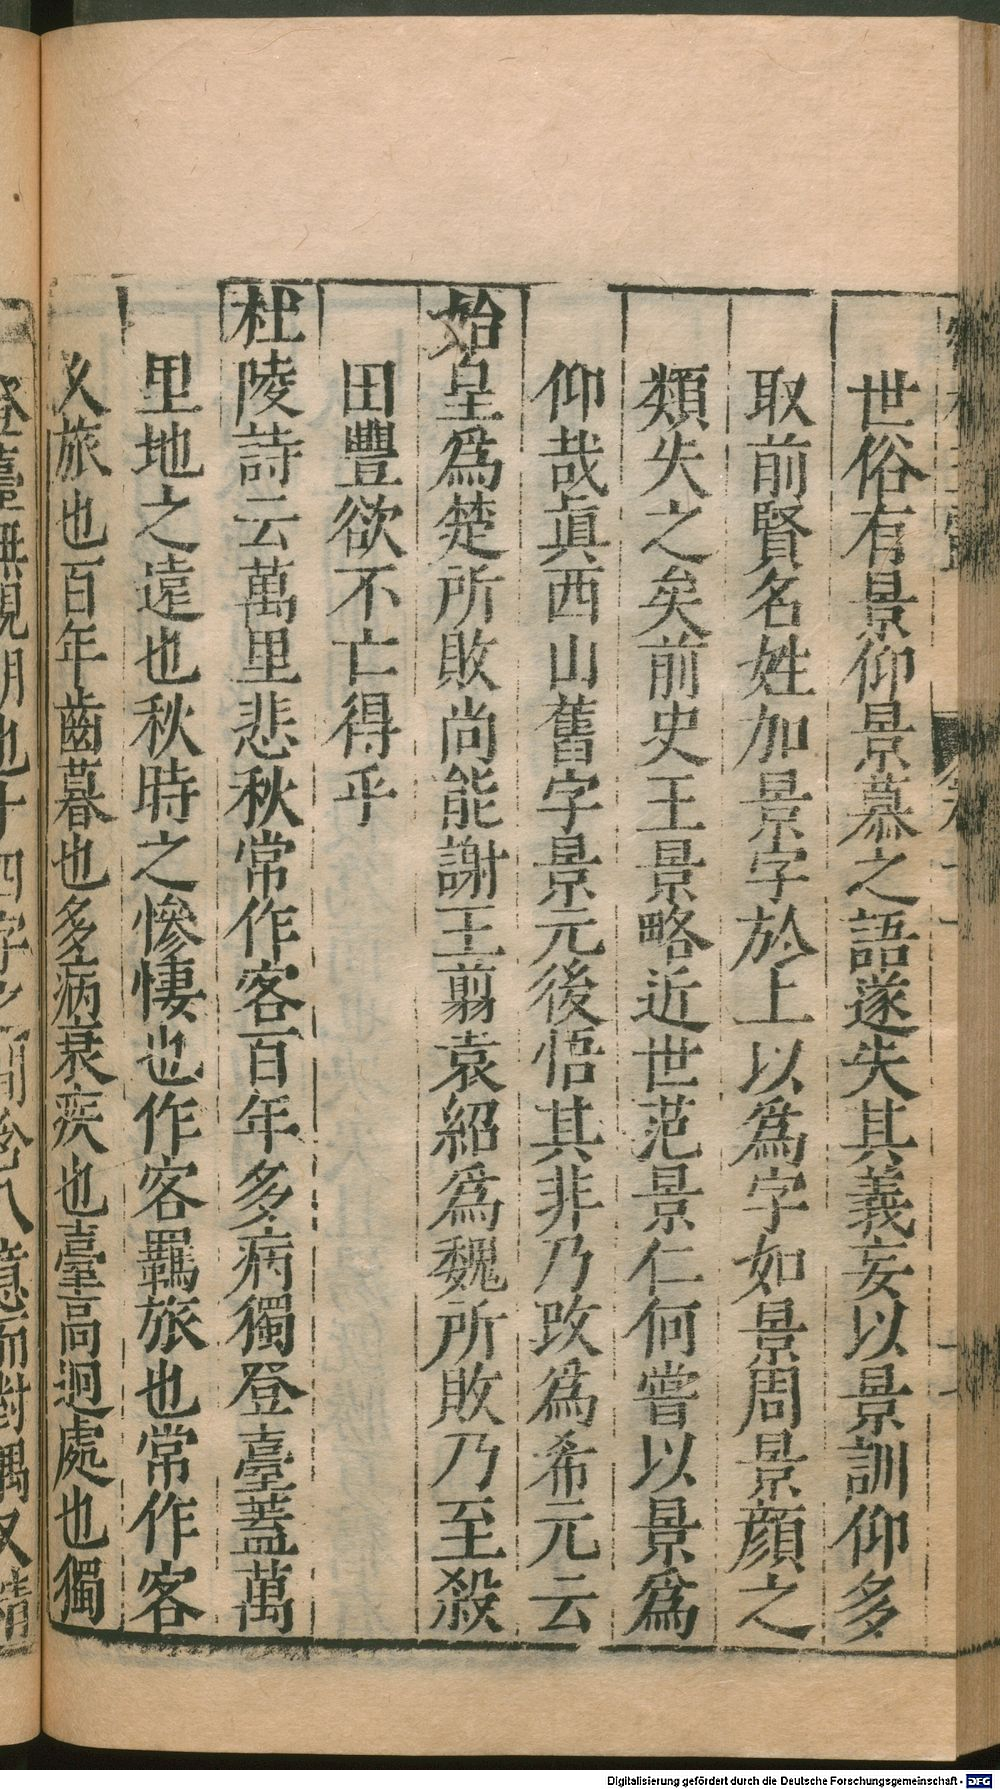 世俗有景仰景慕之語遂失其義妄以景訓仰多
取前賢名姓加景字於上以爲字如景周景顔之
類失之矣前史王景略近世范景仁何嘗以景爲
仰哉眞西山舊字景元後悟其非乃改爲希元云
始皇爲楚所敗尚能謝王翦袁紹爲魏所敗乃至殺
田豐欲不亡得乎
杜陵詩云萬里悲秋常作客百年多病獨登臺蓋萬
里地之遠也秋時之慘悽也作客羈旅也常作客
久旅也百年齒暮也多病衰疾也臺高迥處也獨
登臺無親朋也十四字之間含八意而對偶又精
Digitalisierung gefördert durch die Deutsche Forschungsgemeinschaft - DFG